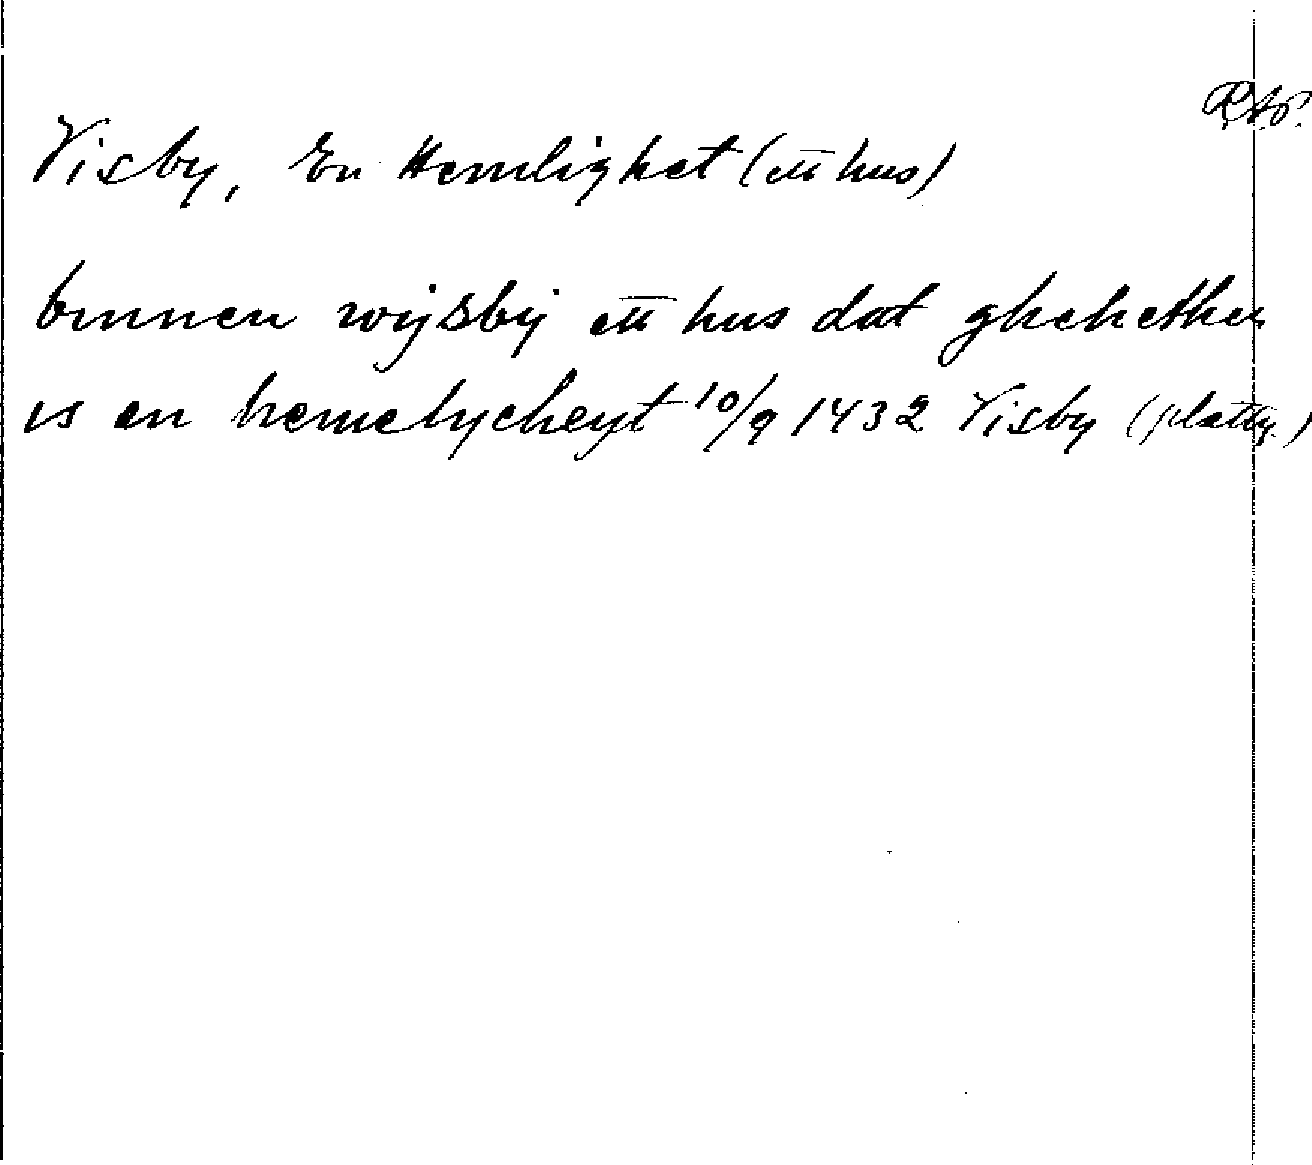 RAP.
Visby, En Hemlighet (ett hus)
binnen wijsbij ett hus dat ghehethen
is en hemelycheyt 10/9 1432 Visby (platty.)